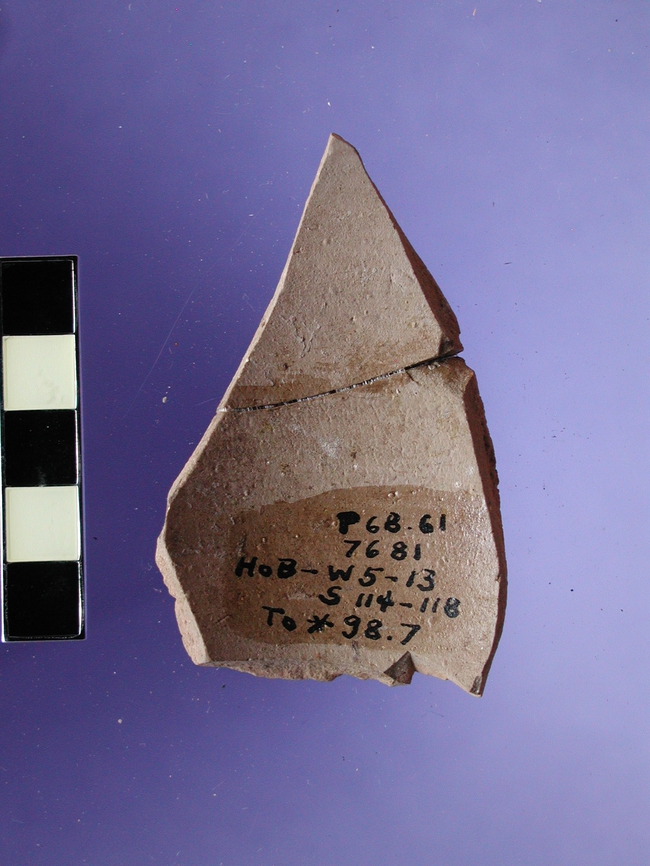 P68.61
7681
HoB-W5-13
S 114-118
To * 98.7